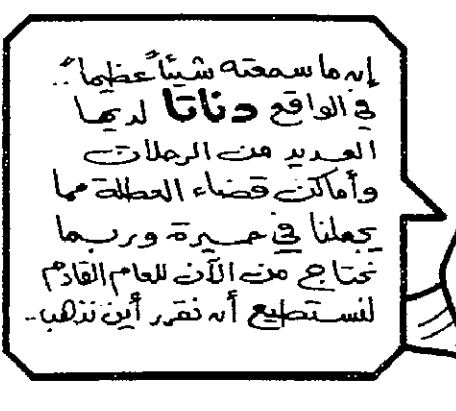 إن ما سمعته شيئاً عظيماً..
في الواقع دناتا لديها
العديد من الرحلات
وأماكن قضاء العطلة مما
يجعلنا في حيرة وربما
نحتاج من الآن للعام القادم
لنستطيع أن نقرر أين نذهب..